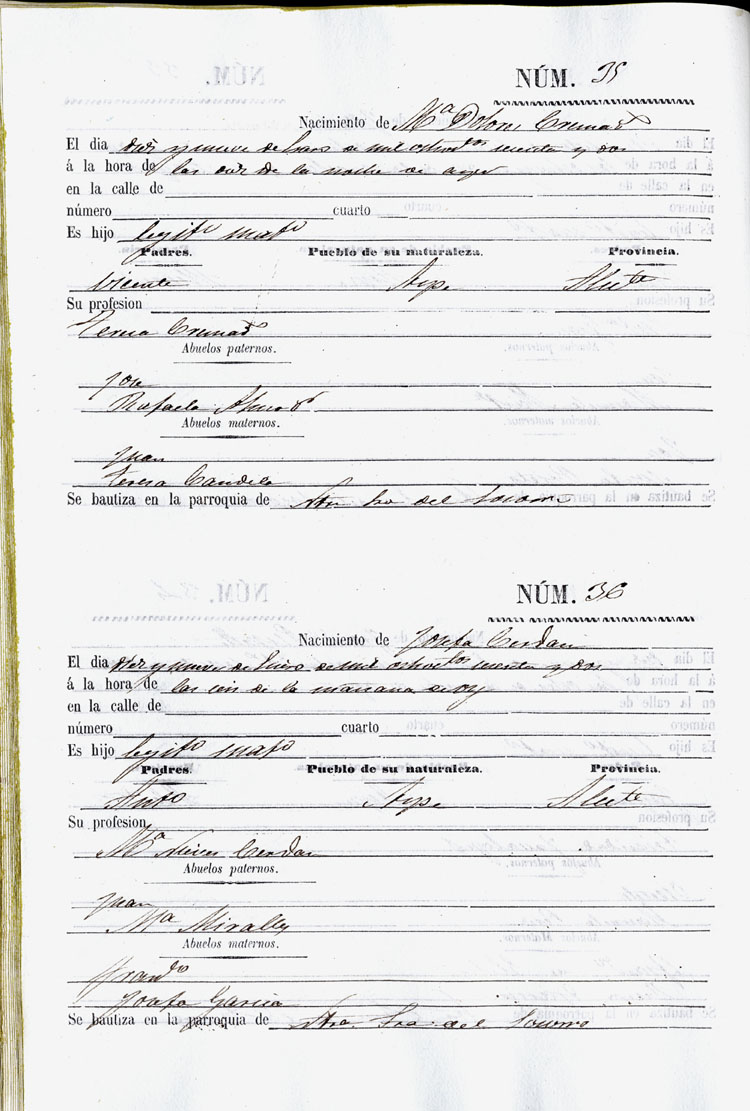 NÚM. 35
Nacimiento de Mª Dolores Cremads
El dia diez y nueve de Enero de mil ochotos sesenta y dos
á la hora de las diez de la noche de ayer
en la calle de
número cuarto
Es hijo legito mato
Padres. Pueblo de su naturaleza. Provincia.
Vicente Aspe Alicte
Su profesion
Teresa Cremads
Abuelos paternos.
Jose
Rafaela
Abuelos maternos.
Juan
Teresa Candela
Se bautiza en la parroquia de Ntra Sra del Socorro
NÚM. 36
Nacimiento de Josefa Cerdan
El dia diez y nueve de Enero de mil ochotos sesenta y dos
á la hora de las seis de la mañana de oy
en la calle de
número cuarto
Es hijo legito mato
Padres. Pueblo de su naturaleza. Provincia.
Anto Aspe Alicte
Su profesion
Mª Nieves Cerdan
Abuelos paternos.
Juan
Mª Miralles
Abuelos maternos.
Franco
Josefa Garcia
Se bautiza en la parroquia de Ntra. Sra del Socorro